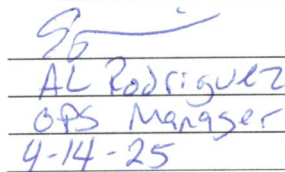 AL Rodriguez
OPS Manager
4-14-25